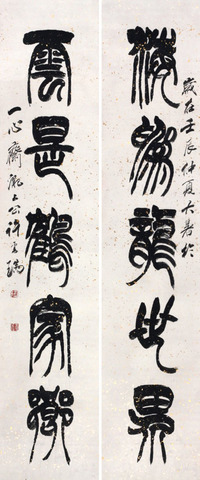 歲在壬辰仲夏大暑於
海為龍世界
雲是鶴家鄉
一心齋